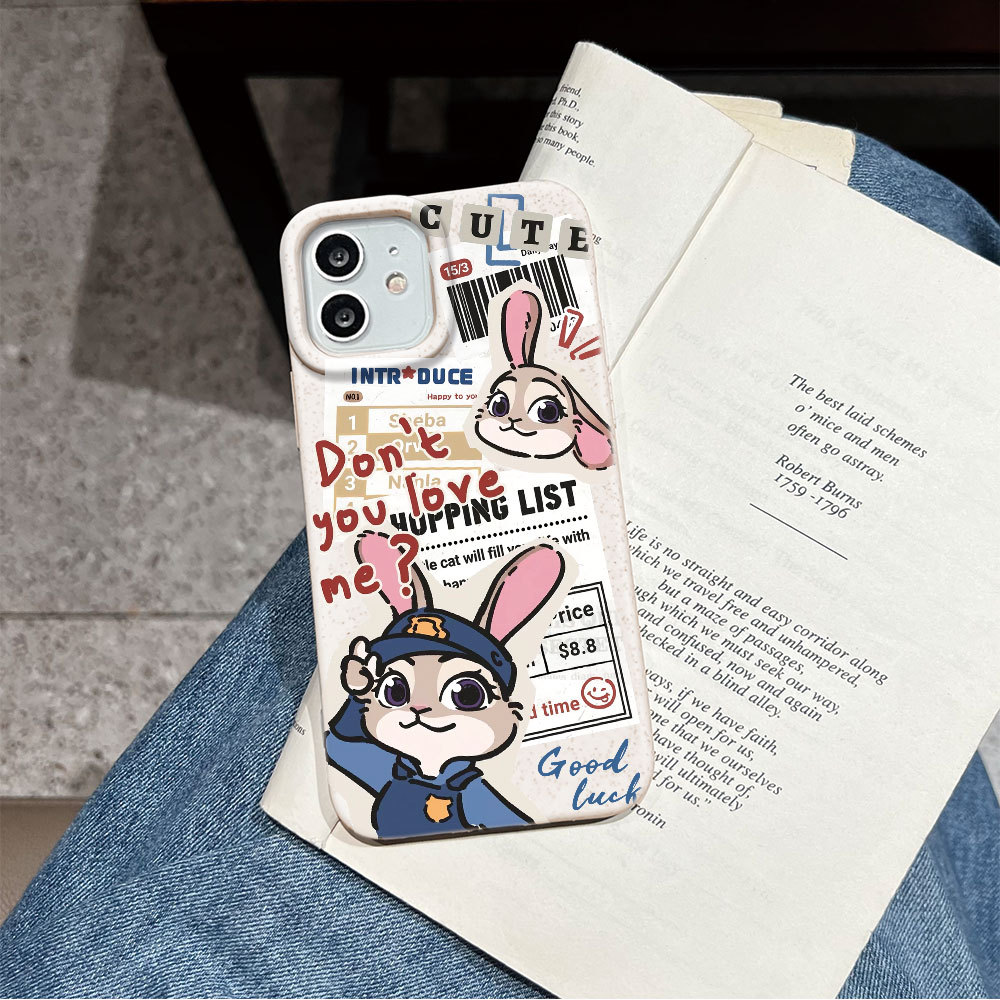 friend,
Ph.D.,
this story
this book,
so many people
CUTE
15/3
INTR*DUCE
NO.1
Happy to you
1 Sheba
2
3 Nanla
Don't
you love
me?
SHOPPING LIST
cat will fill your life with
Price
$8.8
time
Good
luck
The best laid schemes
o' mice and men
often go astray.
Robert Burns
1759 -1796
Life is no straight and easy corridor along
which we travel free and unhampered,
but a maze of passages,
through which we must seek our way,
and confused, now and again
checked in a blind alley.
always, if we have faith,
will open for us,
one that we ourselves
have thought of,
will ultimately
for us."
ronin